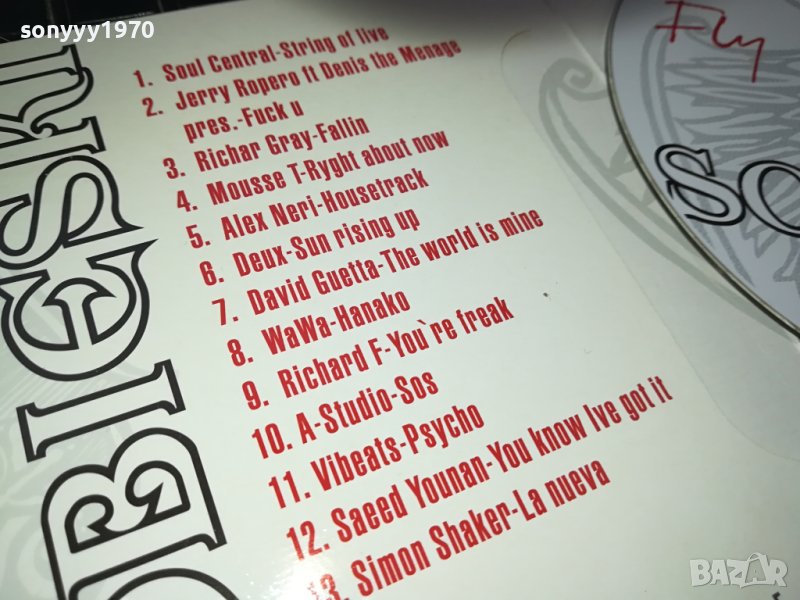 sonyyy1970
1. Soul Central-String of live
2. Jerry Ropero ft Denis the Menage
pres.-Fuck u
3. Richar Gray-Fallin
4. Mousse T-Ryght about now
5. Alex Neri-Housetrack
6. Deux-Sun rising up
7. David Guetta-The world is mine
8. WaWa-Hanako
9. Richard F-You`re freak
10. A-Studio-Sos
11. Vibeats-Psycho
12. Saeed Younan-You know Ive got it
13. Simon Shaker-La nueva
OBIESKI
Fly
SO
BAZAR